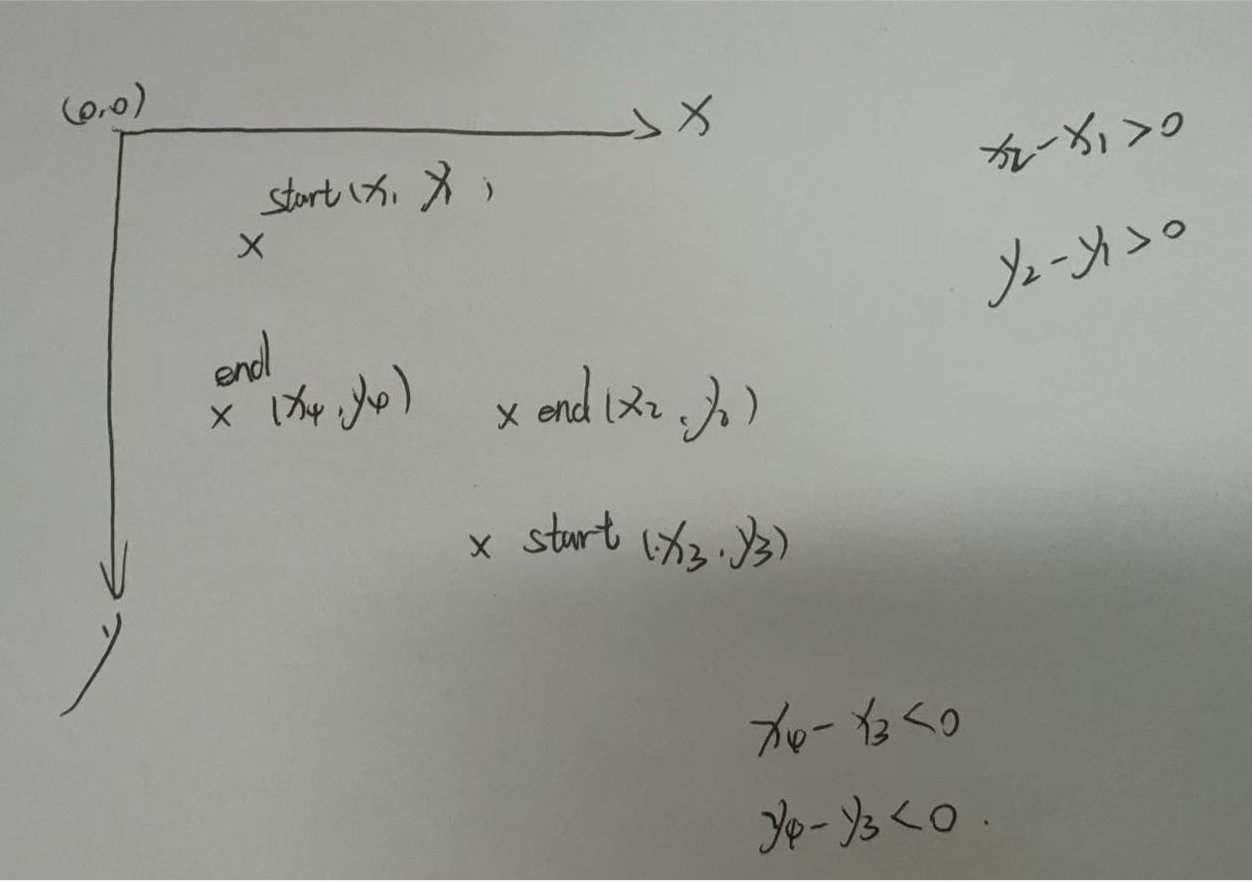 (0,0)
x
x₂-x₁>0
start(x₁ y₁)
x
y₂-y₁>0
end
x (x₄,y₄)
x end(x₂,y₂)
x start (x₃,y₃)
y
x₄-x₃<0
y₄-y₃<0.